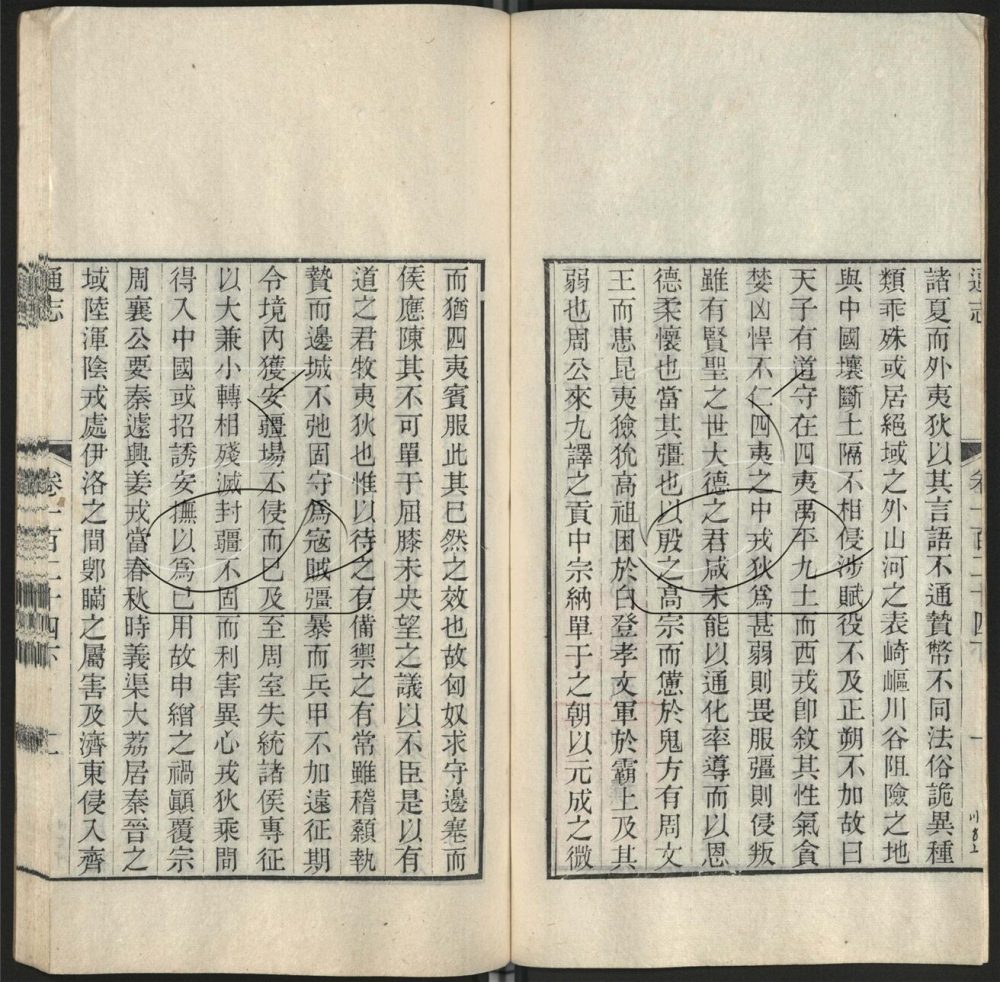 通志
卷一百二十四下
一
諸夏而外夷狄以其言語不通贄幣不同法俗詭異種
類乖殊或居絕域之外山河之表崎嶇川谷阻險之地
與中國壤斷土隔不相侵涉賦役不及正朔不加故曰
天子有道守在四夷禹平九土而西戎卽敘其性氣貪
婪凶悍不仁四夷之中戎狄爲甚弱則畏服彊則侵叛
雖有賢聖之世大德之君咸未能以通化率導而以恩
德柔懷也當其彊也以殷之高宗而憊於鬼方有周文
王而患昆夷獫狁高祖困於白登孝文軍於霸上及其
弱也周公來九譯之貢中宗納單于之朝以元成之微
而猶四夷賓服此其已然之效也故匈奴求守邊塞而
侯應陳其不可單于屈膝未央望之議以不臣是以有
道之君牧夷狄也惟以待之有備禦之有常雖稽顙執
贄而邊城不弛固守爲寇賊彊暴而兵甲不加遠征期
令境內獲安疆場不侵而已及至周室失統諸侯專征
以大兼小轉相殘滅封疆不固而利害異心戎狄乘間
得入中國或招誘安撫以爲已用故申繒之禍顚覆宗
周襄公要秦遽興姜戎當春秋時義渠大荔居秦晉之
域陸渾陰戎處伊洛之間鄋瞞之屬害及濟東侵入齊
通志
卷一百二十四下
二